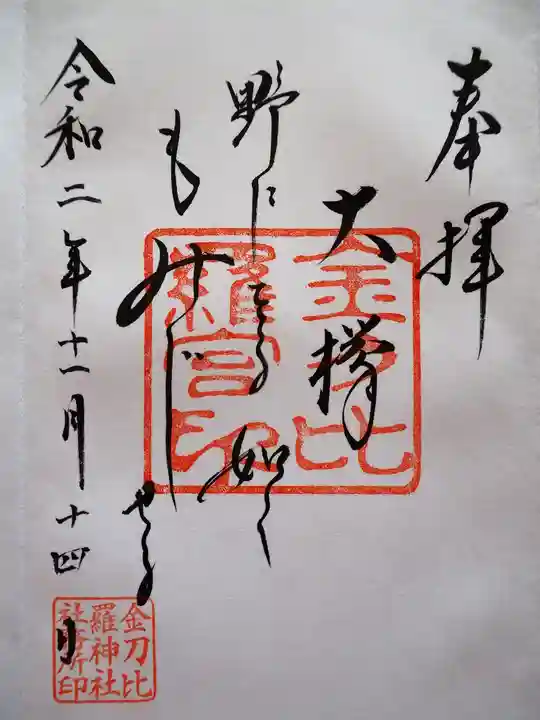 奉拝
大欅
野に
如く
もみじ
令和二年十一月十四日
金刀比
羅宮印
金刀比
羅神社
社務所印